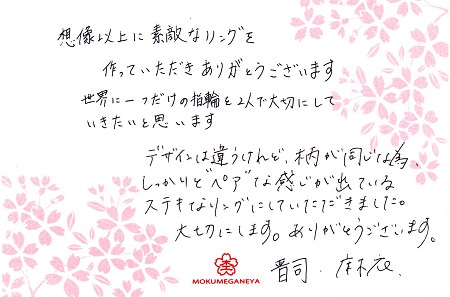 想像以上に素敵なリングを
作っていただきありがとうございます
世界に一つだけの指輪を2人で大切にして
いきたいと思います
デザインは違うけれど、柄が同じな為、
しっかりと"ペア"な感じが出ている
ステキなリングにしていただきました。
大切にします。ありがとうございます。
MOKUMEGANEYA
晋司・麻衣